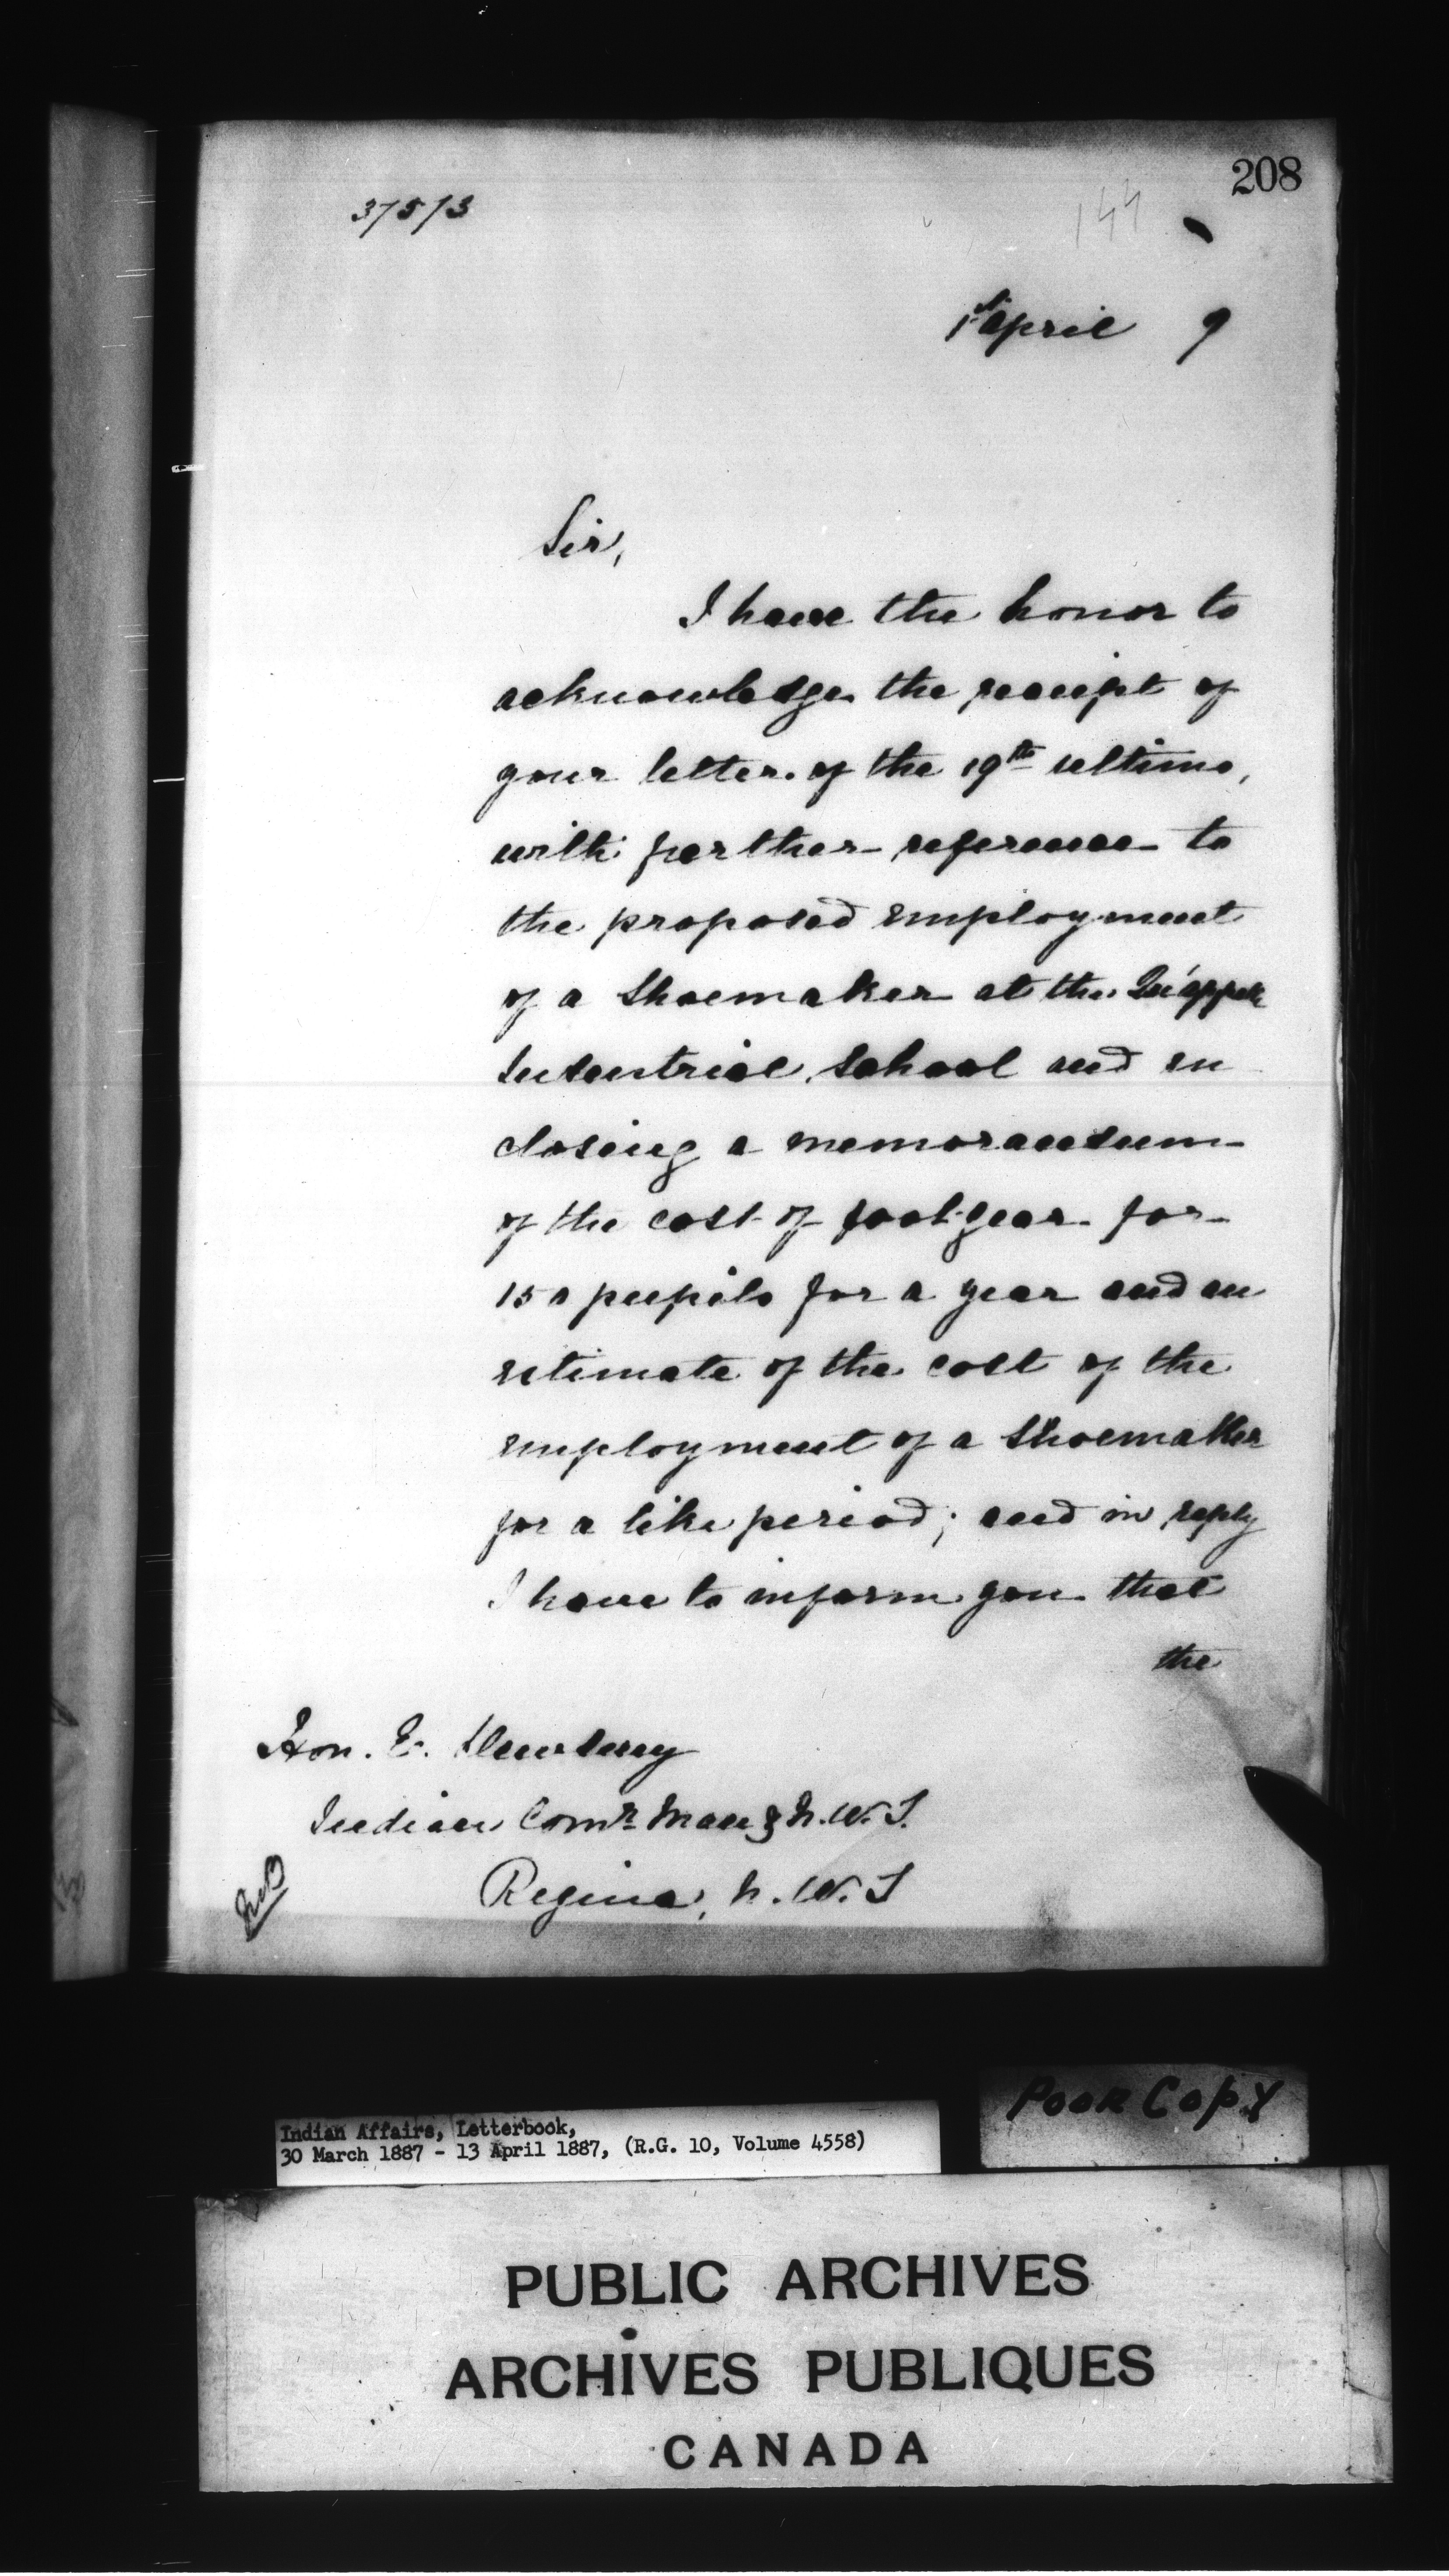 208
37513
144
1st April 9
Sir,
I have the honor to
acknowledge the receipt of
your letter of the 19th ultimo,
with further reference to
the proposed employment
of a Shoemaker at the Qu'appelle
Industrial School and en
closing a memorandum
of the cost of foot-gear for
150 pupils for a year and an
estimate of the cost of the
employment of a Shoemaker
for a like period; and in reply
I have to inform you that
the
Hon. E. Dewdney
Indian Comr. Man & N.W.T.
Regina, N.W.T
Poor Copy
Indian Affairs, Letterbook,
30 March 1887 - 13 April 1887, (R.G. 10, Volume 4558)
PUBLIC ARCHIVES
ARCHIVES PUBLIQUES
CANADA